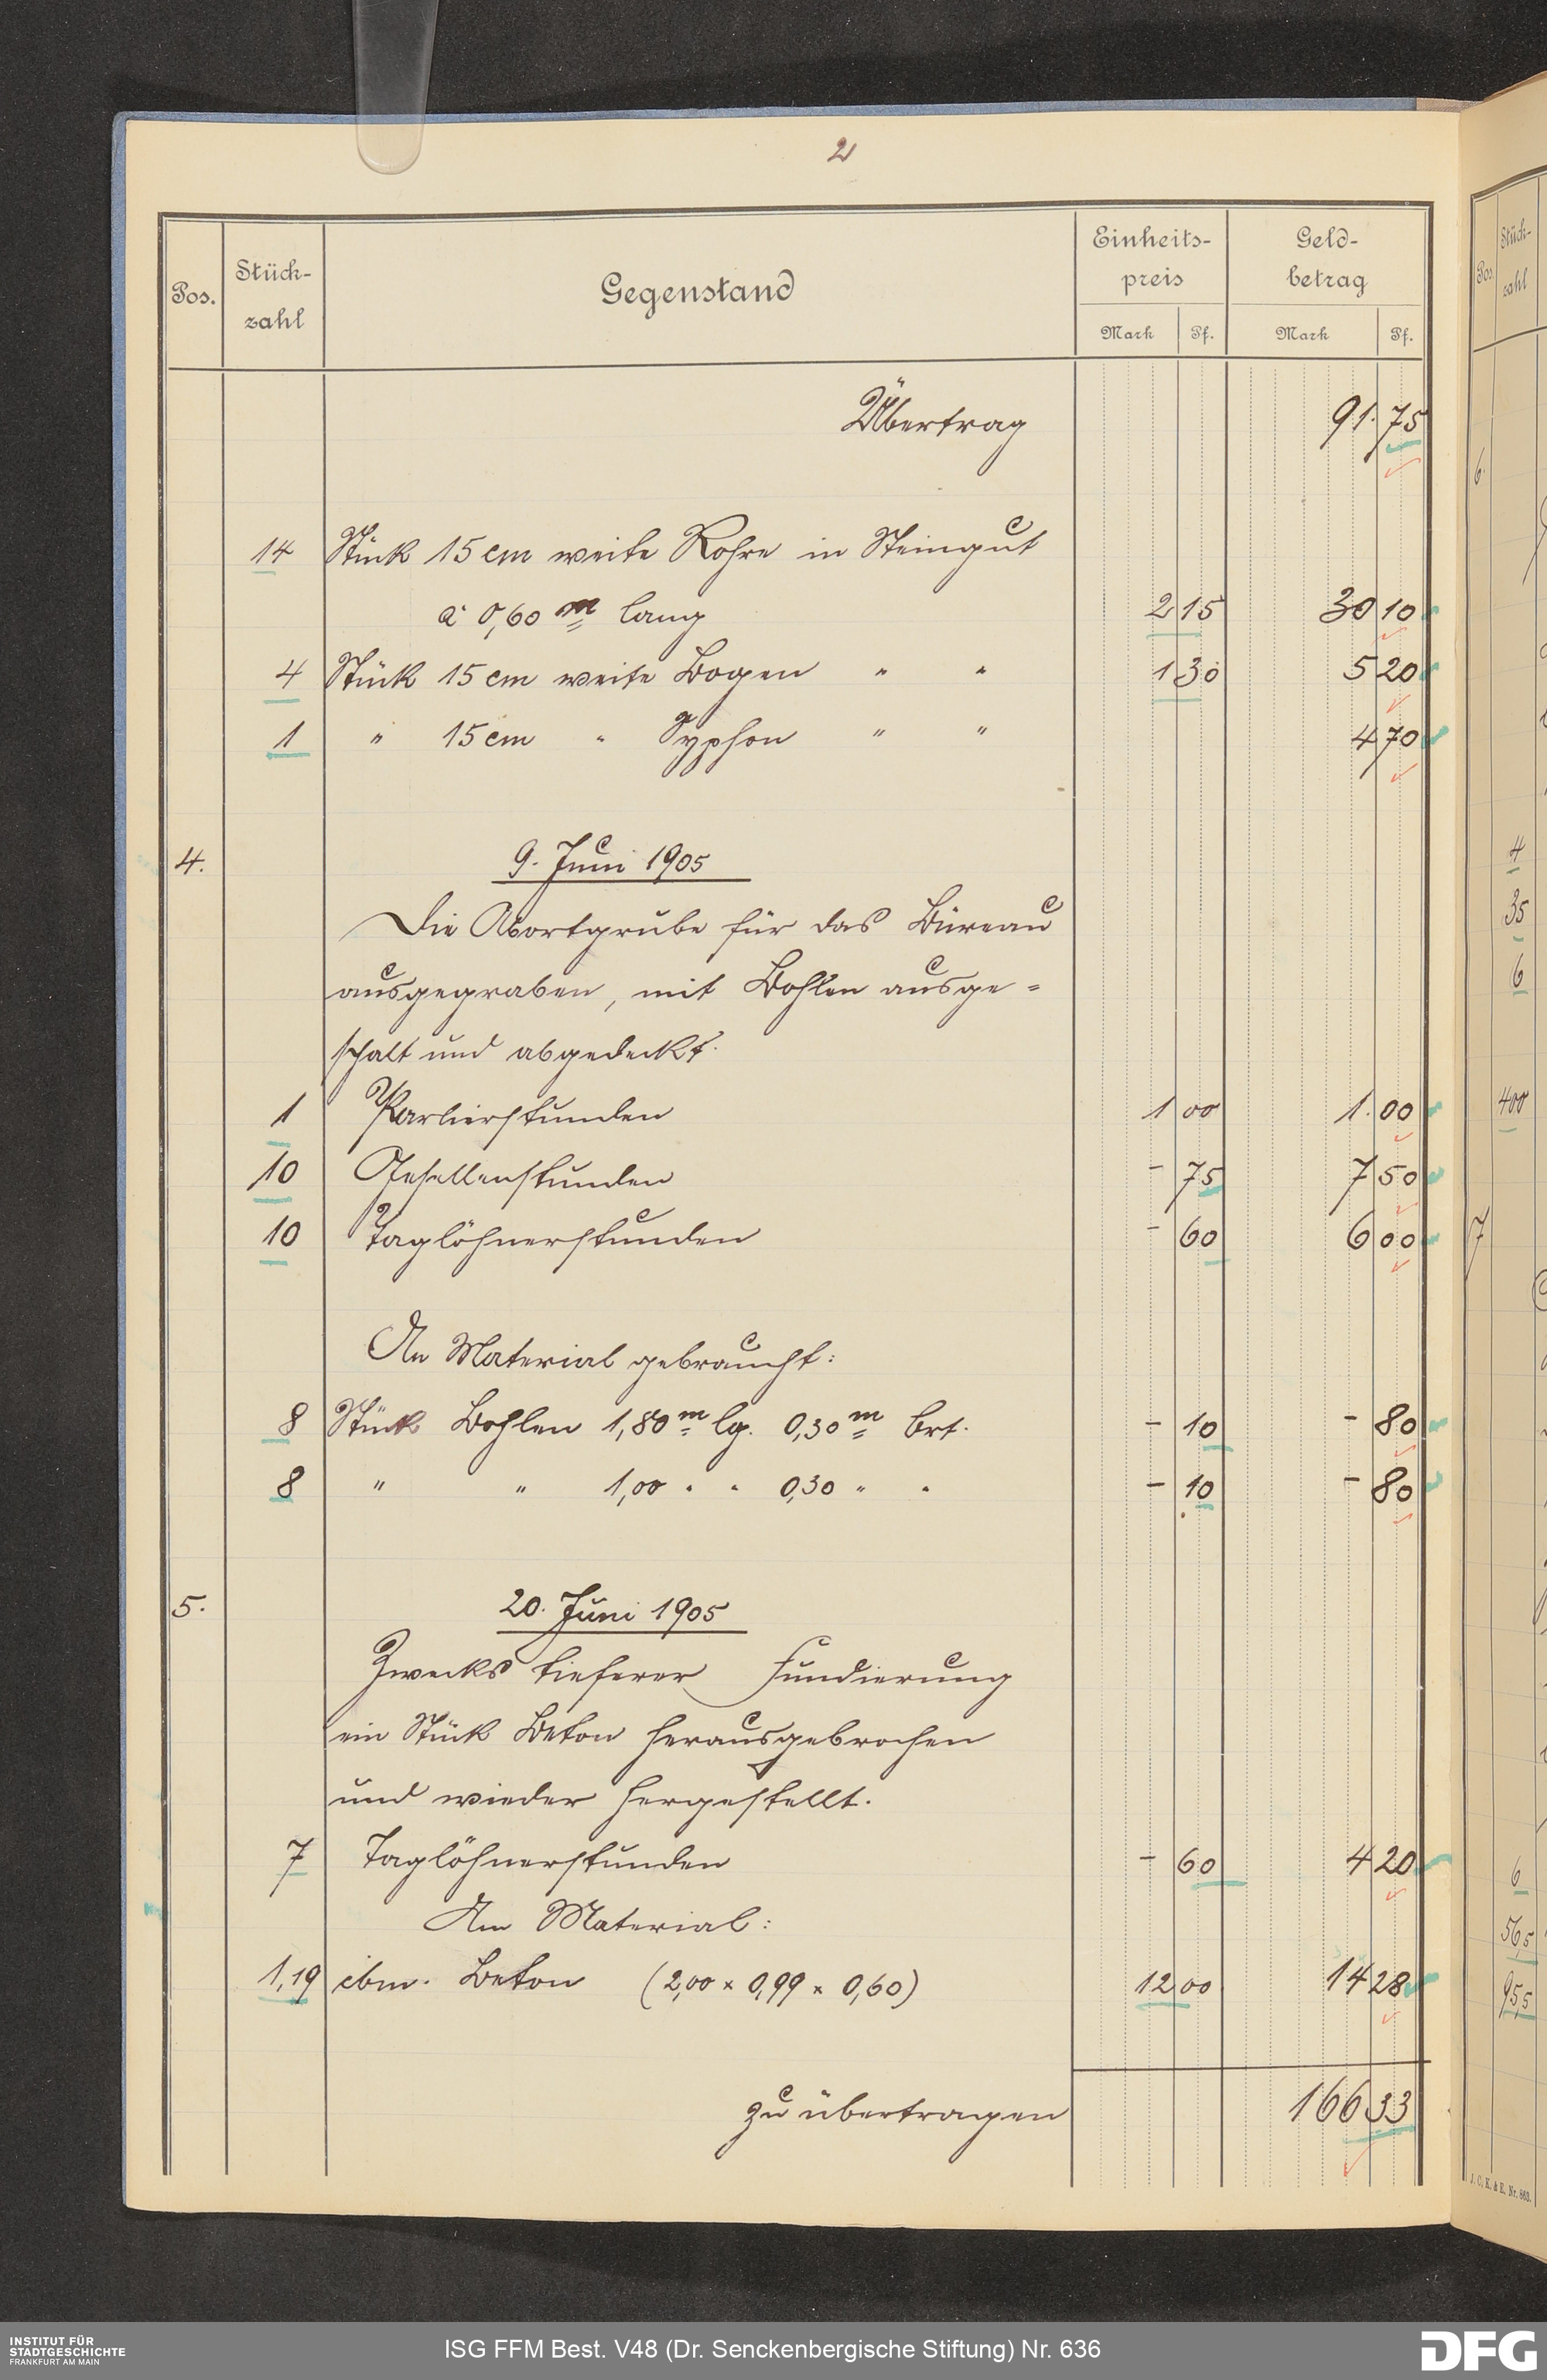 2
Pos. Stück-zahl Gegenstand Einheits-preis Mark Pf. Geld-betrag Mark Pf.
Übertrag 91. 75
14 Stück 15 cm weite Rohre in Steingut
à 0,60 m lang 2 15 30 10
4 Stück 15 cm weite Bogen " " 1 30 5 20
1 " 15 cm " Syphon " " 4 70
4. 9. Juni 1905
Die Abortgrube für das Büreau
ausgegraben, mit Bohlen ausge-
schalt und abgedeckt.
1 Parlierstunden 1 00 1. 00
10 Gesellenstunden - 75 7 50
10 Taglöhnerstunden - 60 6 00
An Material gebraucht:
8 Stück Bohlen 1,80 m lg. 0,30 m brt. - 10 - 80
8 " " 1,00 " " 0,30 " " - 10 - 80
5. 20. Juni 1905
Zwecks tieferer Fundierung
ein Stück Beton herausgebrochen
und wieder hergestellt.
7 Taglöhnerstunden - 60 4 20
An Material:
1,19 cbm. Beton (2,00 x 0,99 x 0,60) 12 00 14 28
zu übertragen 166 33
Pos. Stück-zahl
6.
4
35
6
400
7
6
56,5
95,5
J. C. K. & E. Nr. 863.
INSTITUT FÜR
STADTGESCHICHTE
FRANKFURT AM MAIN
ISG FFM Best. V48 (Dr. Senckenbergische Stiftung) Nr. 636
DFG